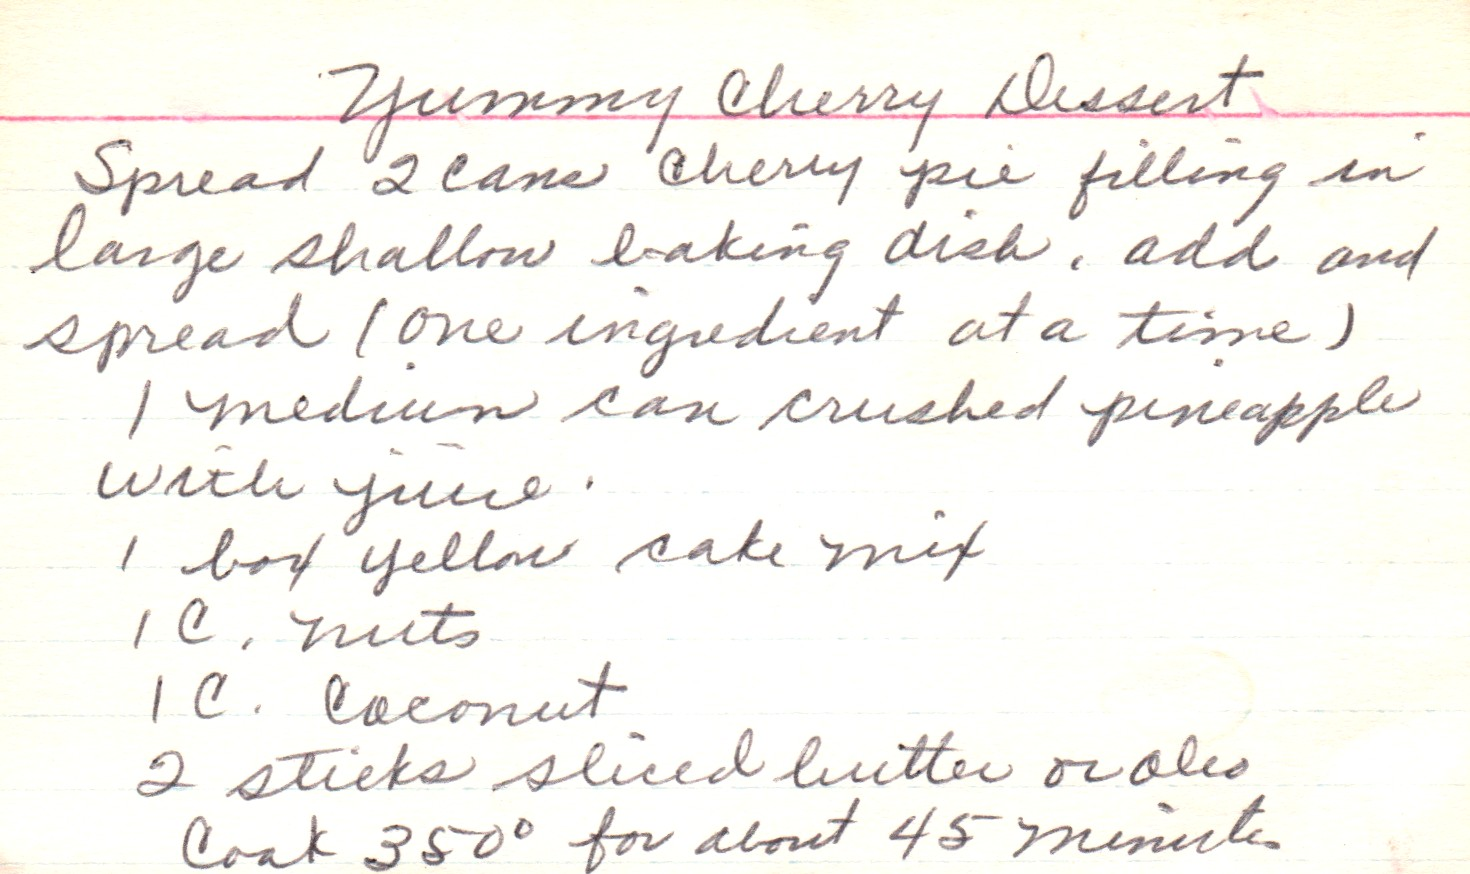 Yummy Cherry Dessert
Spread 2 cans cherry pie filling in
large shallow baking dish, add and
spread (one ingredient at a time)
1 medium can crushed pineapple
with juice.
1 box yellow cake mix
1 C. nuts
1 C. Coconut
2 sticks sliced butter or oleo
Cook 350° for about 45 minutes